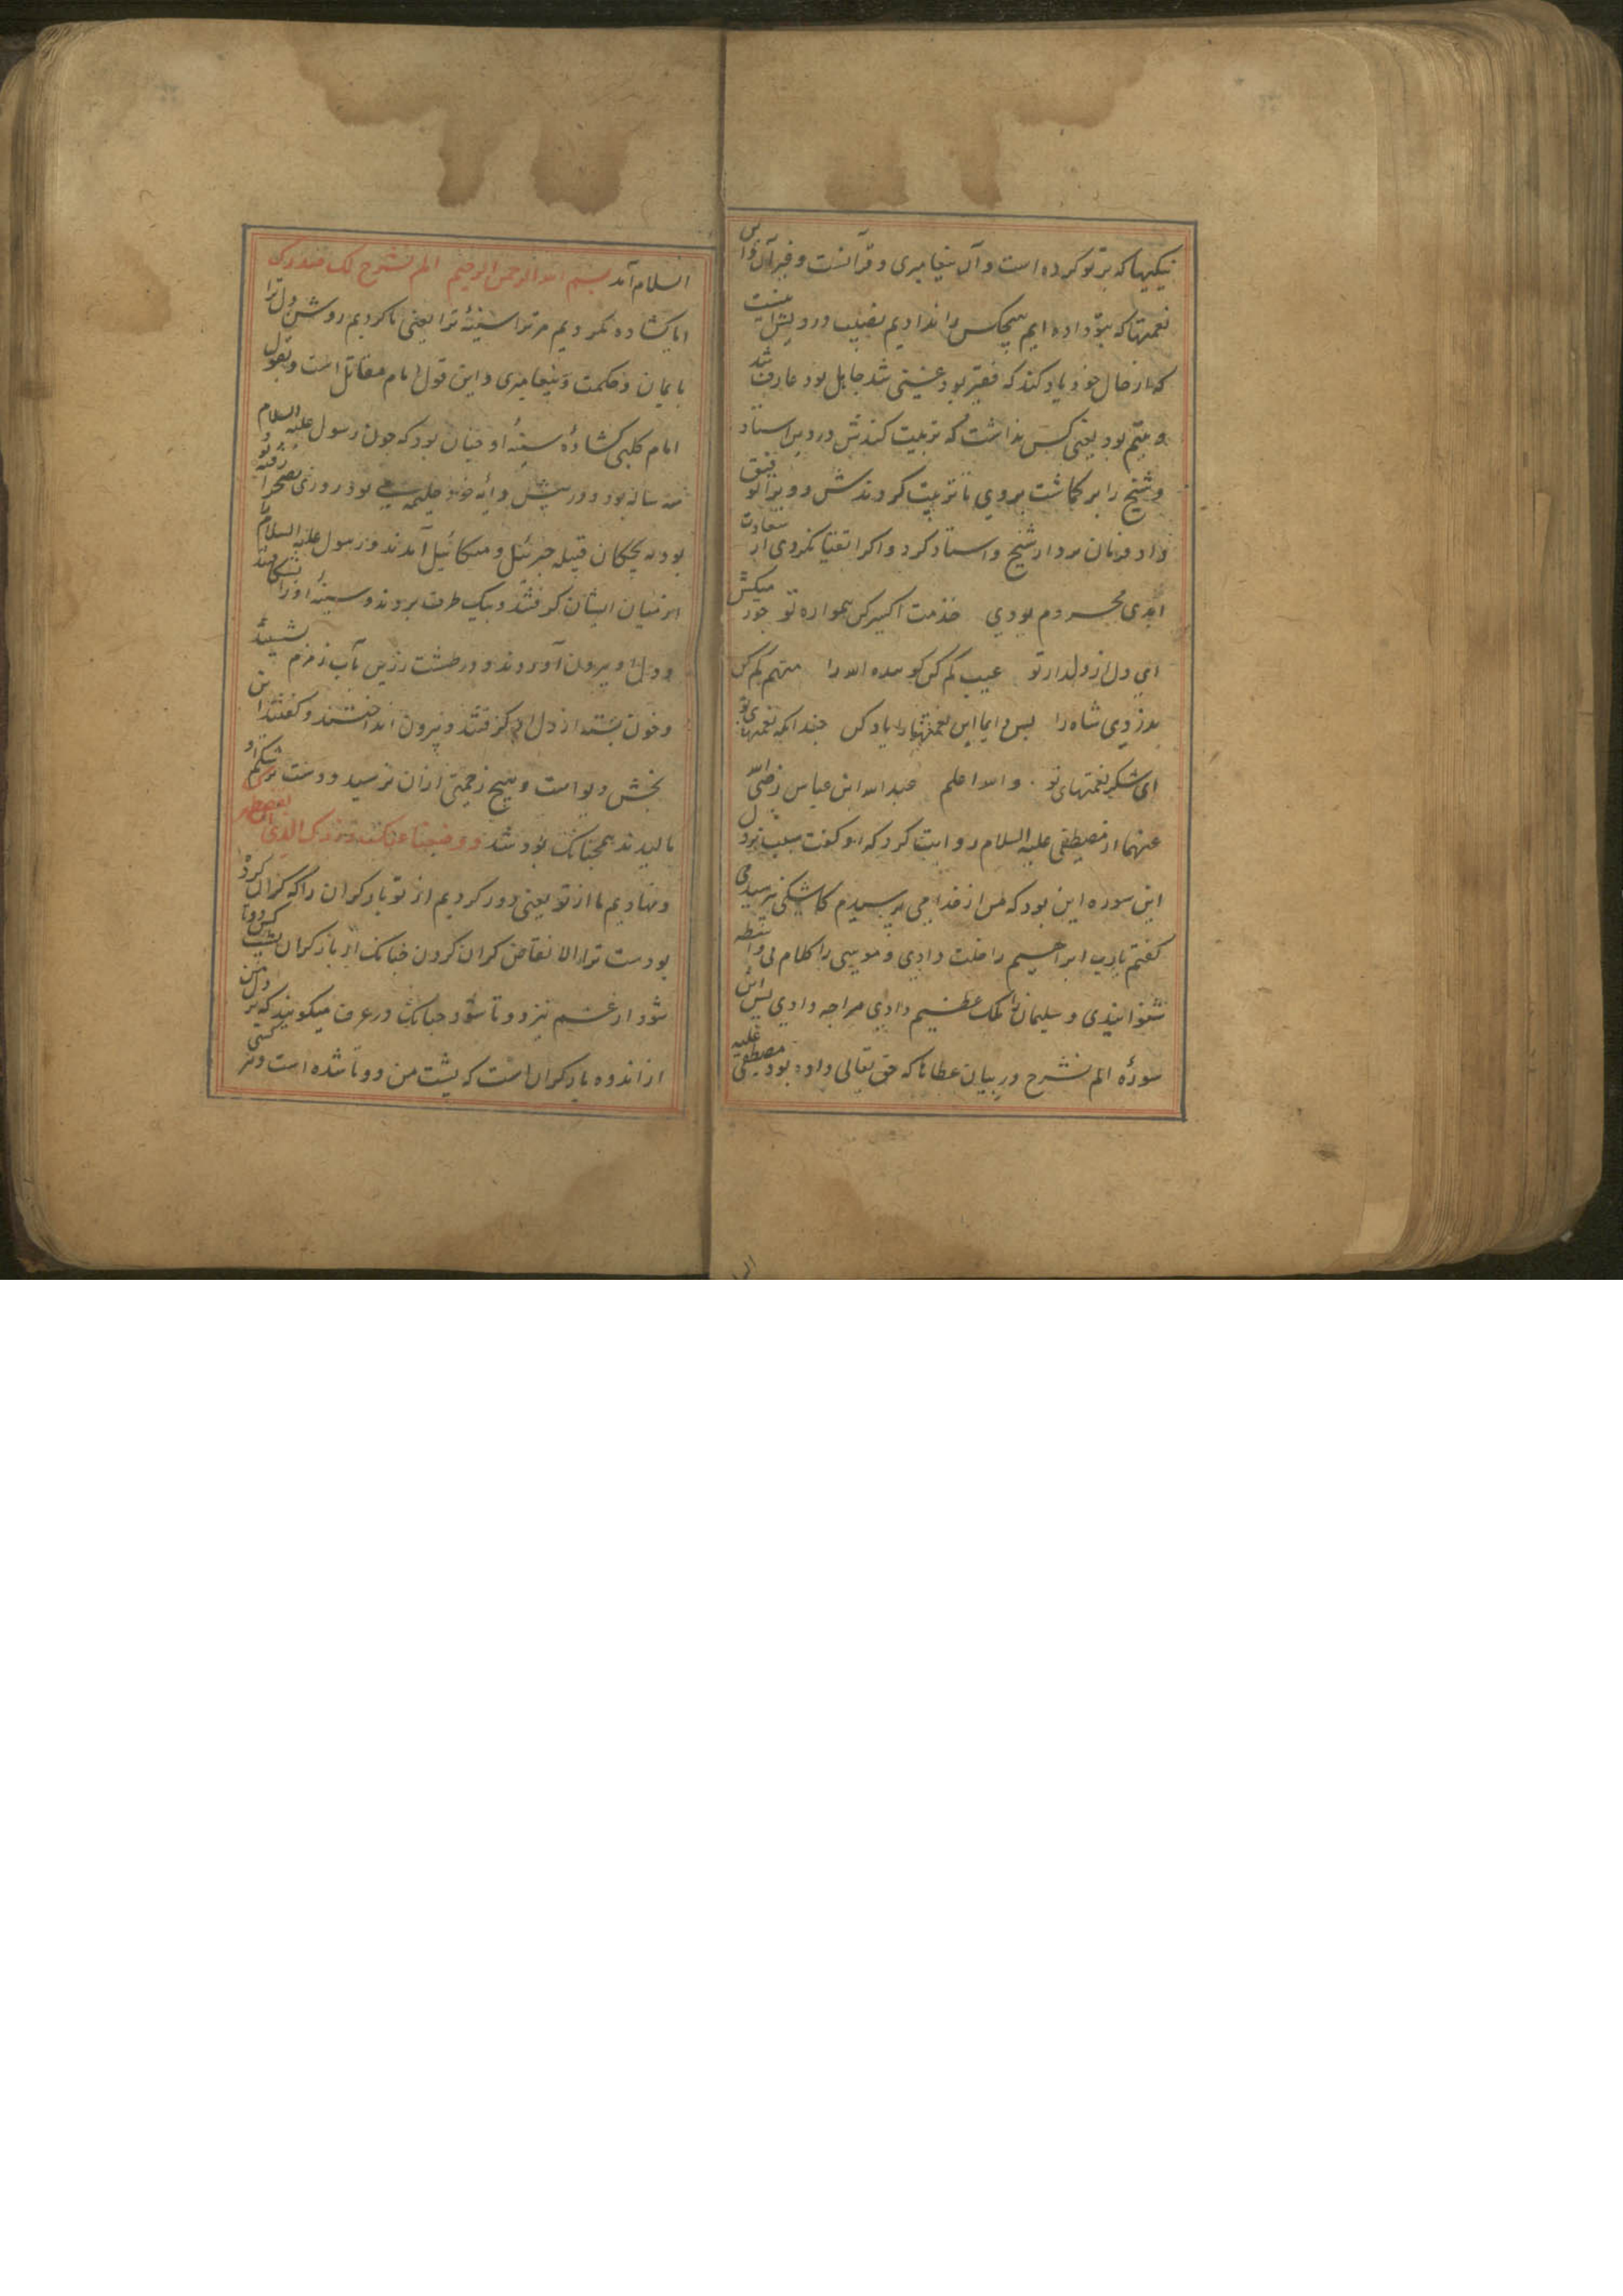 نیکیها که بر تو کرده است و آن پیغامبری و قرآنست و خبر آن
نعمتها که بتو داده ایم هیچکس را ندادیم نصیب درویش
که از حال خود یاد کند که فقیر بود غنی شد جاهل بود عارف شد
و یتیم بود یعنی کس نداشت که تربیت کندش درویرا استاد
و شیخ را بر گماشت بروی تا تربیت کردندش و ویرا توفیق
داد فرمان بردار شیخ و استاد کرد و اگر نکردی از سعادت
ابدی محروم بودی خدمت اکسیر کن همواره تو جور میکش
ای دل از دلدار تو عیب کم کن کو بنده الله را متهم کم کن
بدزدی شاه را پس دایما این نعمتها را یاد کن
ای شکر نعمتهای تو والله اعلم عبدالله ابن عباس رضی الله
عنهما از مصطفی علیه السلام روایت کرد که او گفت سبب نزول
این سوره این بود که من از خدا می پرسیدم کاشکی نپرسیدمی
گفتم یا رب ابراهیم را خلت دادی و موسی را کلام بی واسطه
شنوانیدی و سلیمان را ملک عظیم دادی مرا چه دادی پس این
سورهٔ الم نشرح در بیان عطاها که حق تعالی داده بود مصطفی علیه
السلام آمد بسم الله الرحمن الرحیم الم نشرح لک صدرک
ایا کشاده نکردیم مر ترا سینهٔ ترا یعنی ما کردیم روشن دل ترا
بایمان و حکمت و پیغامبری و این قول امام مقاتل است و بقول
امام کلبی کشادهٔ سینهٔ او چنان بود که چون رسول علیه السلام
سه ساله بود و در پیش دایهٔ خود حلیمه می بود روزی بصحرا رفته
بود با بچکان قبیله جبرئیل و میکائیل آمدند و رسول علیه السلام را
از میان ایشان گرفتند و بیک طرف بردند و سینهٔ او را بشکافتند
و دل او بیرون آوردند و در طشت زرین بآب زمزم بشستند
و خون بسته از دل او گرفتند و بیرون انداختند و گفتند این
بخش دیو است و هیچ زحمتی ازان نرسید و دست بر شکم او
مالیدند همچنانک بود شد و وضعنا عنک وزرک الذی انقض ظهرک
و نهادیم ما از تو یعنی دور کردیم از تو بار گران را که گران کرده
بودست ترا الانقاض گران کردن چنانک از بار گران پشت کس دوتا
شود از غم نیز دوتا شود چنانک در عرف میگویند که بر دل من
از اندوه بار گران است که پشت من دوتا شده است و نیز کسی